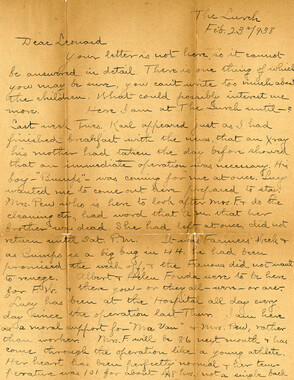 The Lurch
Feb. 23rd 1938
Dear Leonard
Your letter is not here so it cannot
be answered in detail There is one thing of which
you may be sure, you can't write too much about
the children. What could possibly interest me
more. Here I am at The Lurch until - ?
Last week Tues. Karl appeared just as I had
finished breakfast with the news, that an xray
his mother had taken the day before showed
that an immediate operation was necessary. His
boy "Bumps" was coming for me at once. They
wanted me to come out here prepared to stay.
Mrs. Pew who is here to look after Mrs. F. &amp; do the
cleaning etc, had word that her
brother was dead. She had left at once, did not
return until Sat. P.M. It was Farmers Week &amp;
as Bumps is a big bug in 4 H. he had been
promised the week off, &amp; the Farms did not want
to renege. Albert &amp; Helen F. were to be here
for F.W. &amp; there you - or they all - were - or are.
Lucy has been at the Hospital all day every
day since the operation last Thurs. I am here
as "a moral support for Ma Van" &amp; Mrs. Pew, rather
than worker. Mrs. F. will be 86 next month &amp; has
come through the operation like a young athlete.
Her heart has been perfectly normal &amp; her tem-
perature was 101 for about 48 hrs. not a single